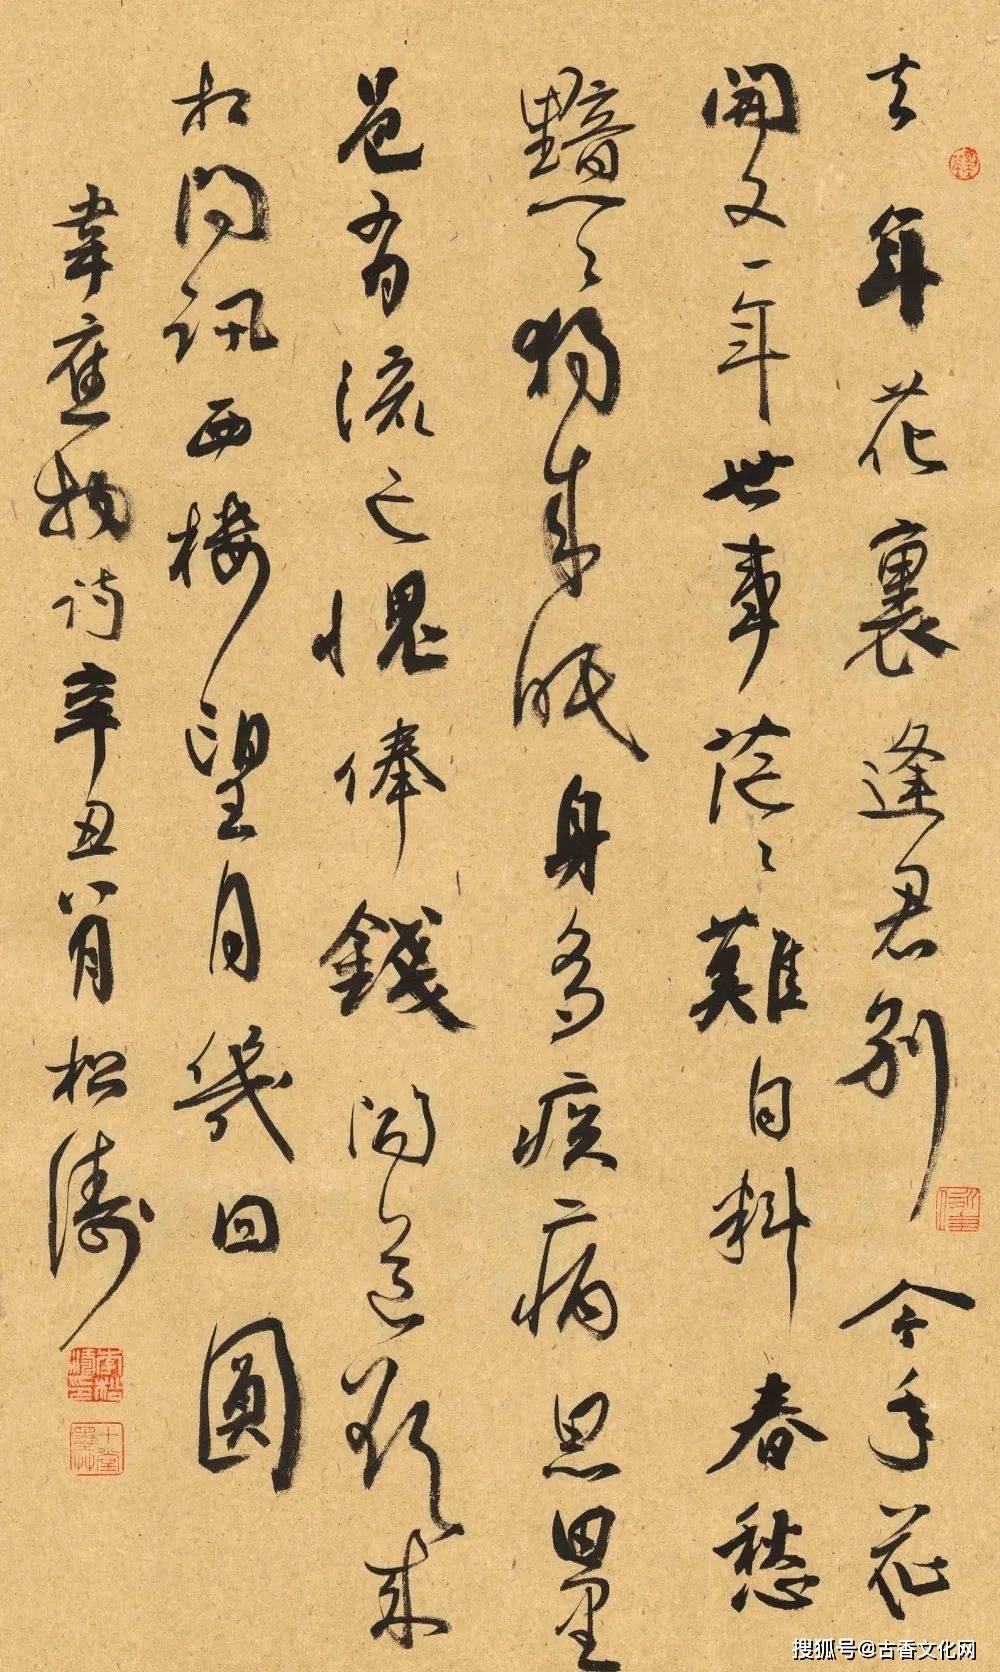 去年花裏逢君別今年花
開又一年世事茫々難自料春愁
黯々獨成眠身多疾病思田里
邑有流亡愧俸錢聞道欲來
相問訊西樓望月幾回圓
韋應物詩辛丑八月松濤
搜狐号@古香文化网